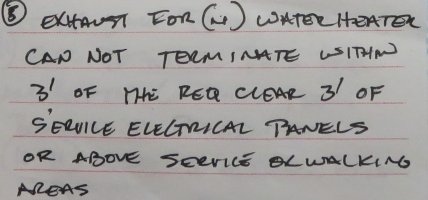 ⑧ EXHAUST FOR (N) WATER HEATER
CAN NOT TERMINATE WITHIN
3' OF THE REQ CLEAR 3' OF
SERVICE ELECTRICAL PANELS
OR ABOVE SERVICE OR WALKING
AREAS